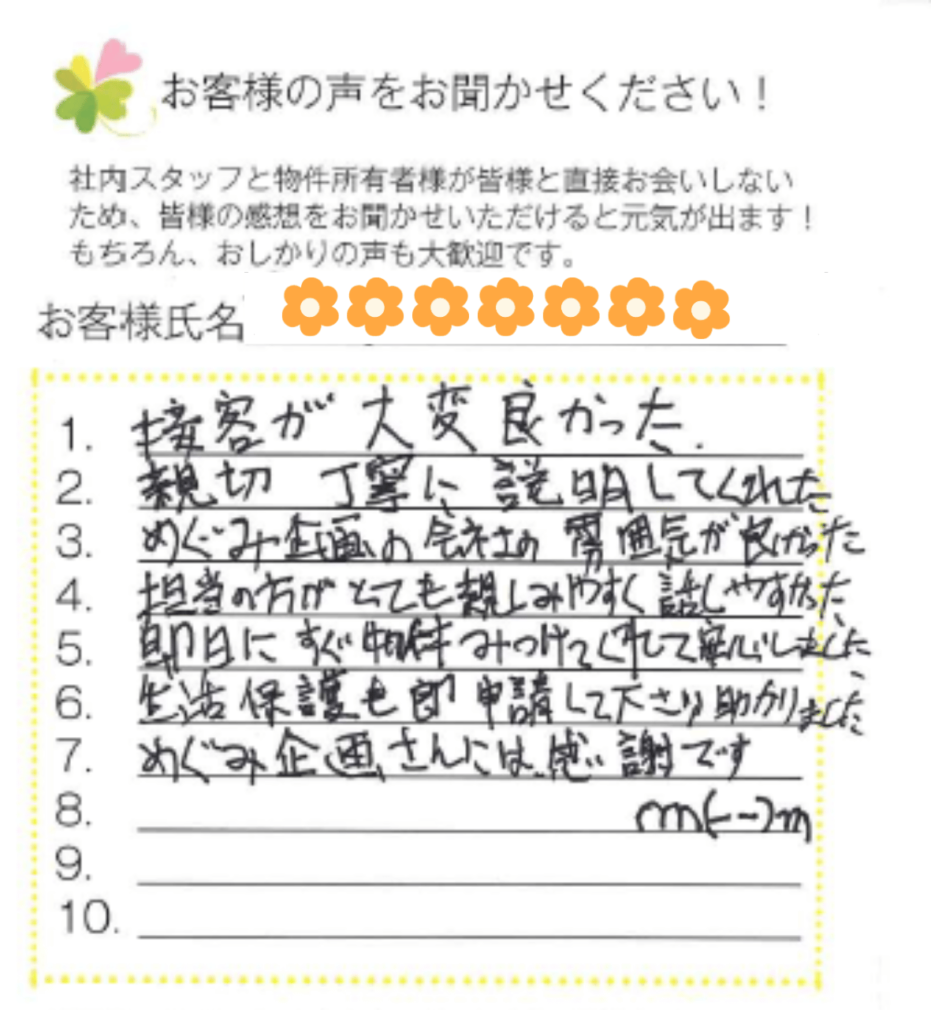 お客様の声をお聞かせください！
社内スタッフと物件所有者様が皆様と直接お会いしない
ため、皆様の感想をお聞かせいただけると元気が出ます！
もちろん、おしかりの声も大歓迎です。
お客様氏名
1. 接客が 大変良かった.
2. 親切 丁寧に 説明してくれた
3. めぐみ企画の会社の 雰囲気が良かった
4. 担当の方がとても親しみやすく話しやすかった
5. 即日にすぐ物件みつけてくれて安心しました
6. 生活保護も即申請して下さり助かりました
7. めぐみ企画さんには感謝です
8. m(--)m
9.
10.